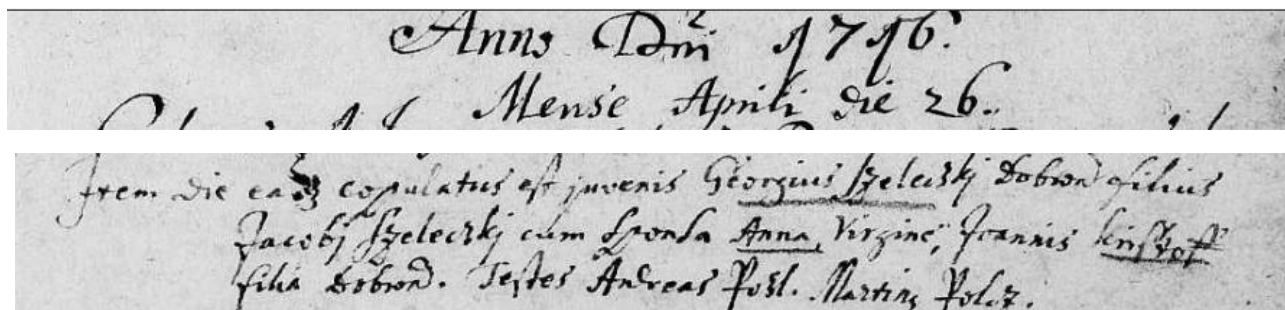 Anno Dni 1716.
Mense Aprili die 26.
Item die eadẽ copulatus est juvenis Georgius Szeleczkj Dobron filius
Jacobj Szeleczkj cum sponsa Anna, Virgine, Joannis Kristoff
filia Dobron. Testes Andreas Posl. Martinꝰ Polcz.